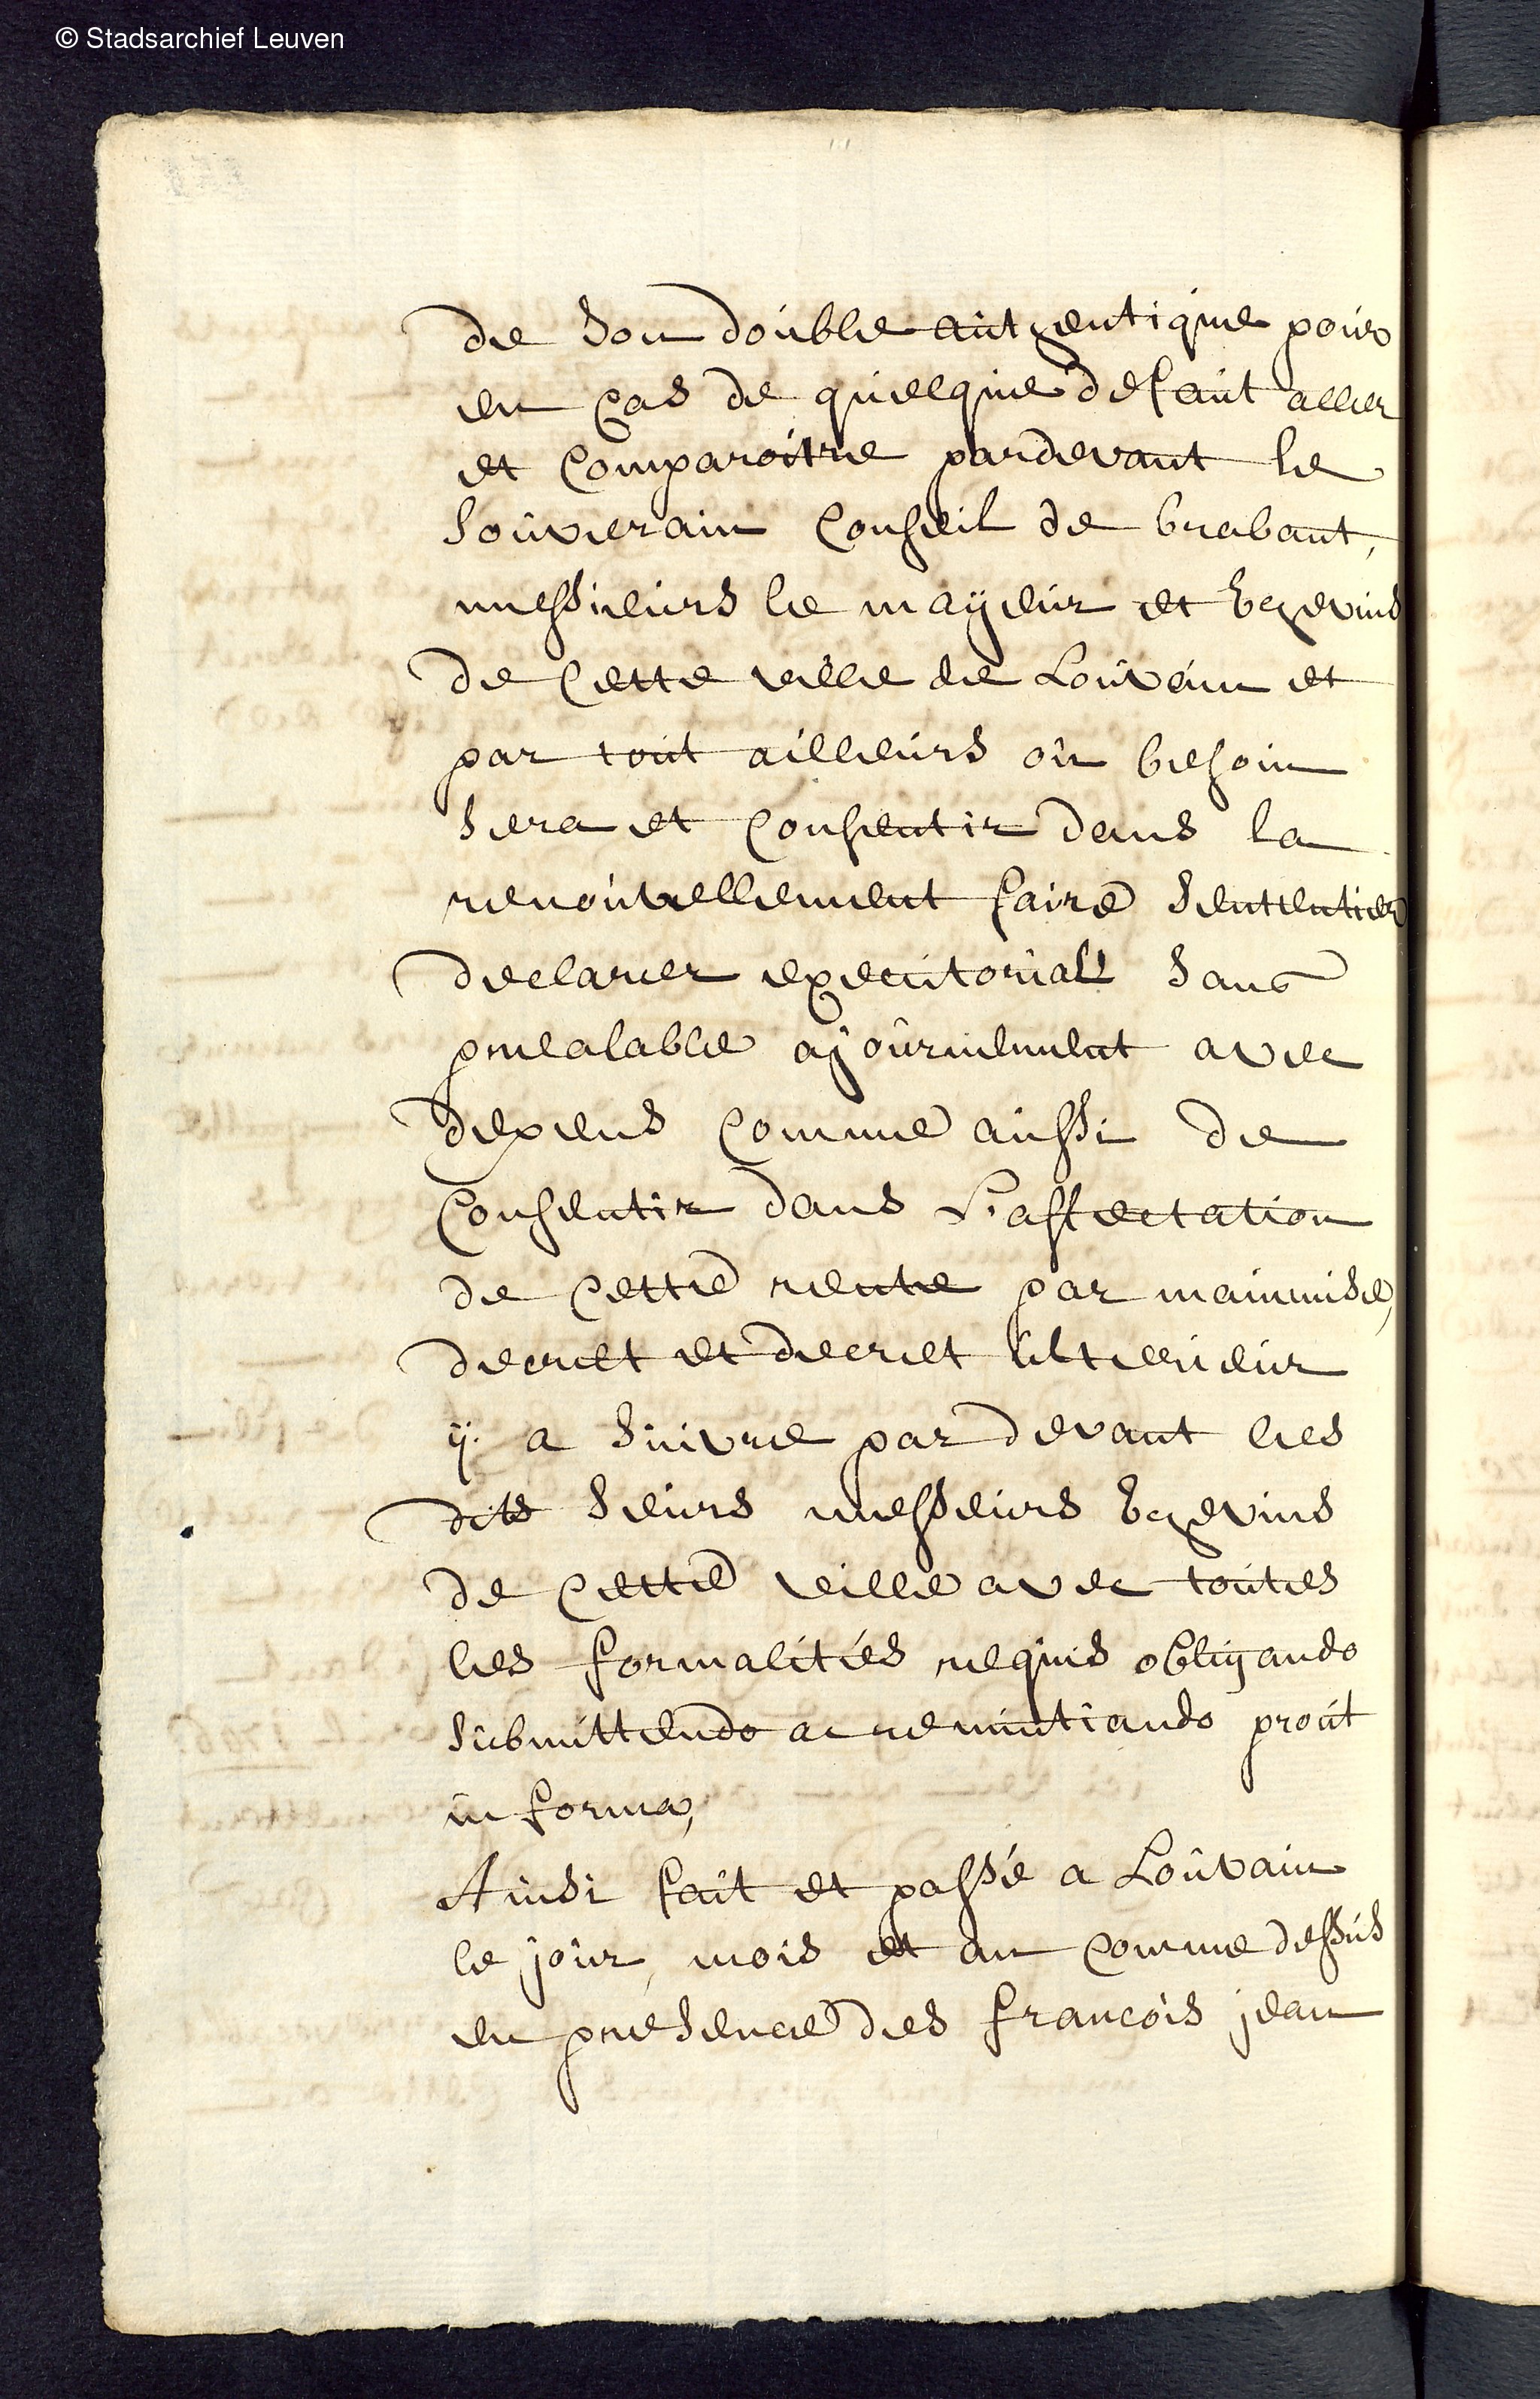 © Stadsarchief Leuven
de son double authentique pour
en cas de quelque defaut aller
et comparoitre pardevant le
souverain conseil de brabant,
messieurs le mayeur et Echevins
de cette ville de Louvain et
par tout ailleurs où besoin
sera et consentir dans la
renouvellement faire sententier
declarer executorial sans
prealable ajournement avec
depens comme aussi de
consentir dans l'affectation
de cette rente par mainmise,
decret et decret ulterieur
ÿ a suivre par devant les
dits sieurs messieurs Echevins
de cette ville avec toutes
les formalités requis obligando
submittendo ac renuntiando prout
in forma,
Ainsi fait et passé a Louvain
le jour, mois et an comme dessus
en presence des francois jean